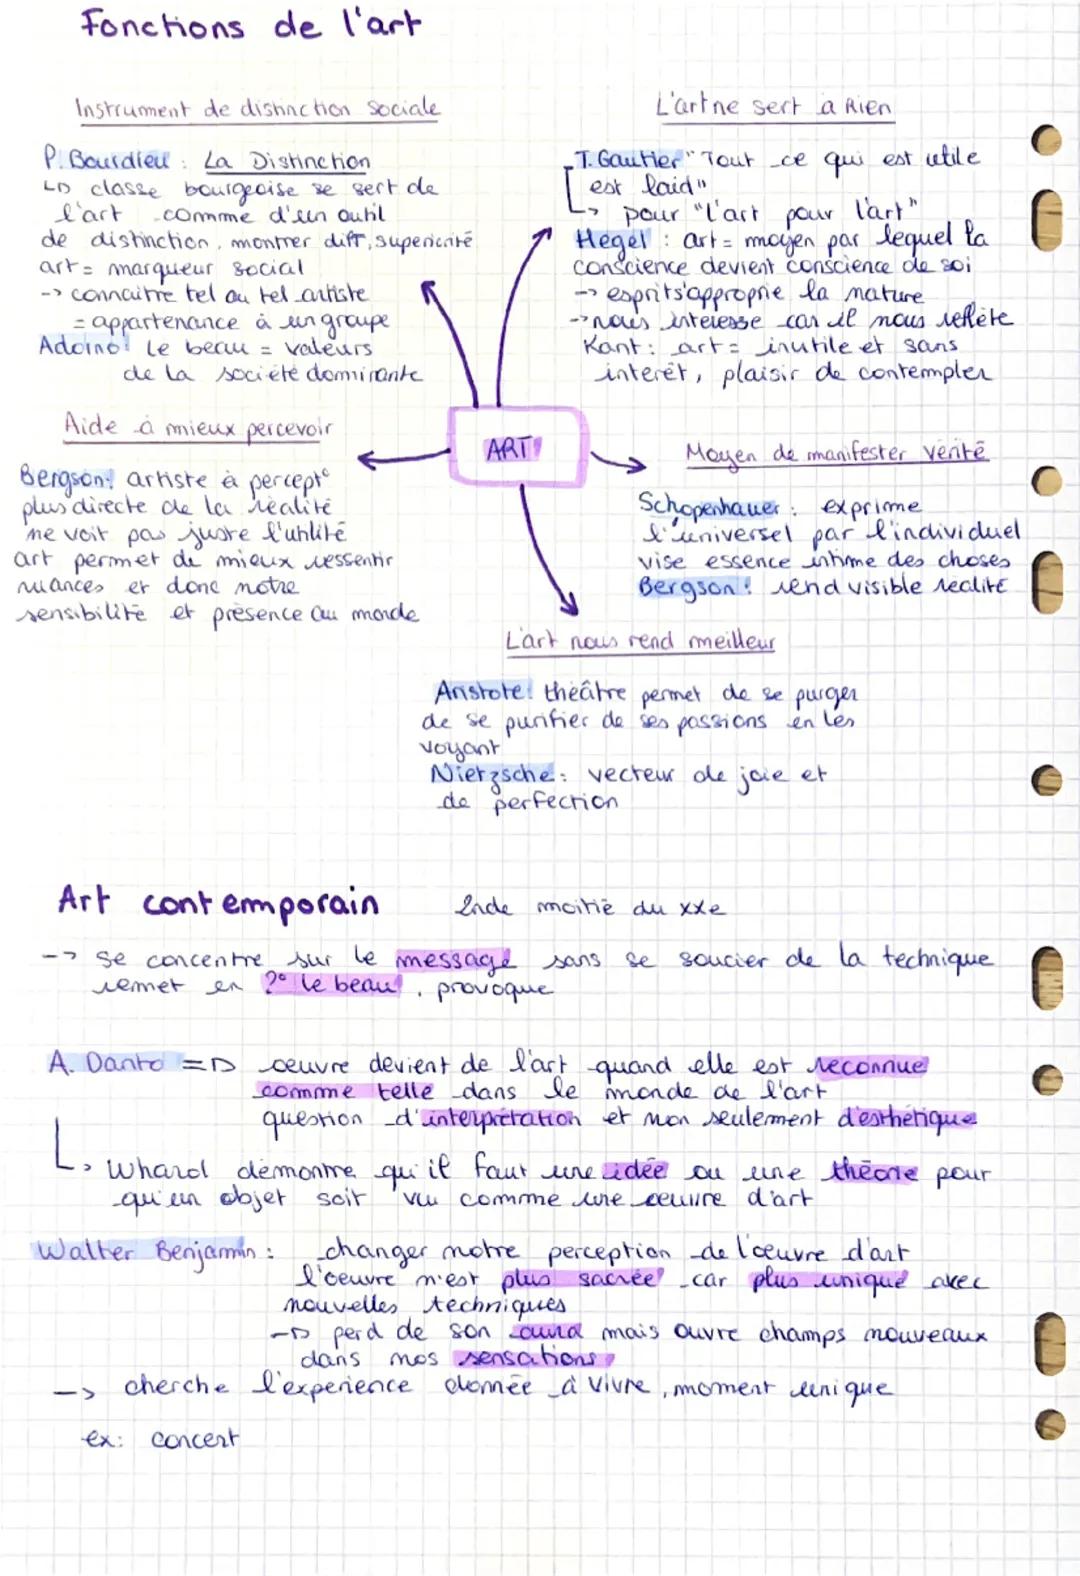 Fonctions de l'art
Instrument de distinction sociale
P. Bourdieu : La Distinction
↳ classe bourgeoise se sert de
l'art comme d'un outil
de distinction, montrer diff, supériorité
art = marqueur social
-> connaitre tel ou tel artiste
= appartenance à un groupe
Adorno: Le beau = valeurs
de la société dominante
L'art ne sert à Rien
T. Gautier "Tout ce qui est utile
est laid"
-> pour "l'art pour l'art"
Hegel : art = moyen par lequel la
conscience devient conscience de soi
-> esprit s'approprie la nature
-> nous interesse car il nous reflète
Kant : art = inutile et sans
interêt, plaisir de contempler
ART
Aide à mieux percevoir
Bergson: artiste à percept°
plus directe de la réalité
ne voit pas juste l'utilité
art permet de mieux ressentir
nuances et donc notre
sensibilité et présence au monde
Moyen de manifester vérité
Schopenhauer : exprime
l'universel par l'individuel
vise essence intime des choses
Bergson : rend visible réalité
L'art nous rend meilleur
Aristote: théâtre permet de se purger
de se purifier de ses passions en les
voyant
Nietzsche : vecteur de joie et
de perfection
Art contemporain 2nde moitié du XXe
-> se concentre sur le message sans se soucier de la technique
remet en ?° le beau, provoque
A. Danto => œuvre devient de l'art quand elle est reconnue
comme telle dans le monde de l'art
question d'interprétation et non seulement d'esthétique
↳ Wharol démontre qu'il faut une idée ou une théorie pour
qu'un objet soit vu comme une œuvre d'art
Walter Benjamin : changer notre perception de l'œuvre d'art
l'oeuvre n'est plus sacrée car plus unique avec
nouvelles techniques
-> perd de son aura mais ouvre champs nouveaux
dans nos sensations
-> cherche l'experience donnée à vivre, moment unique
ex: concert